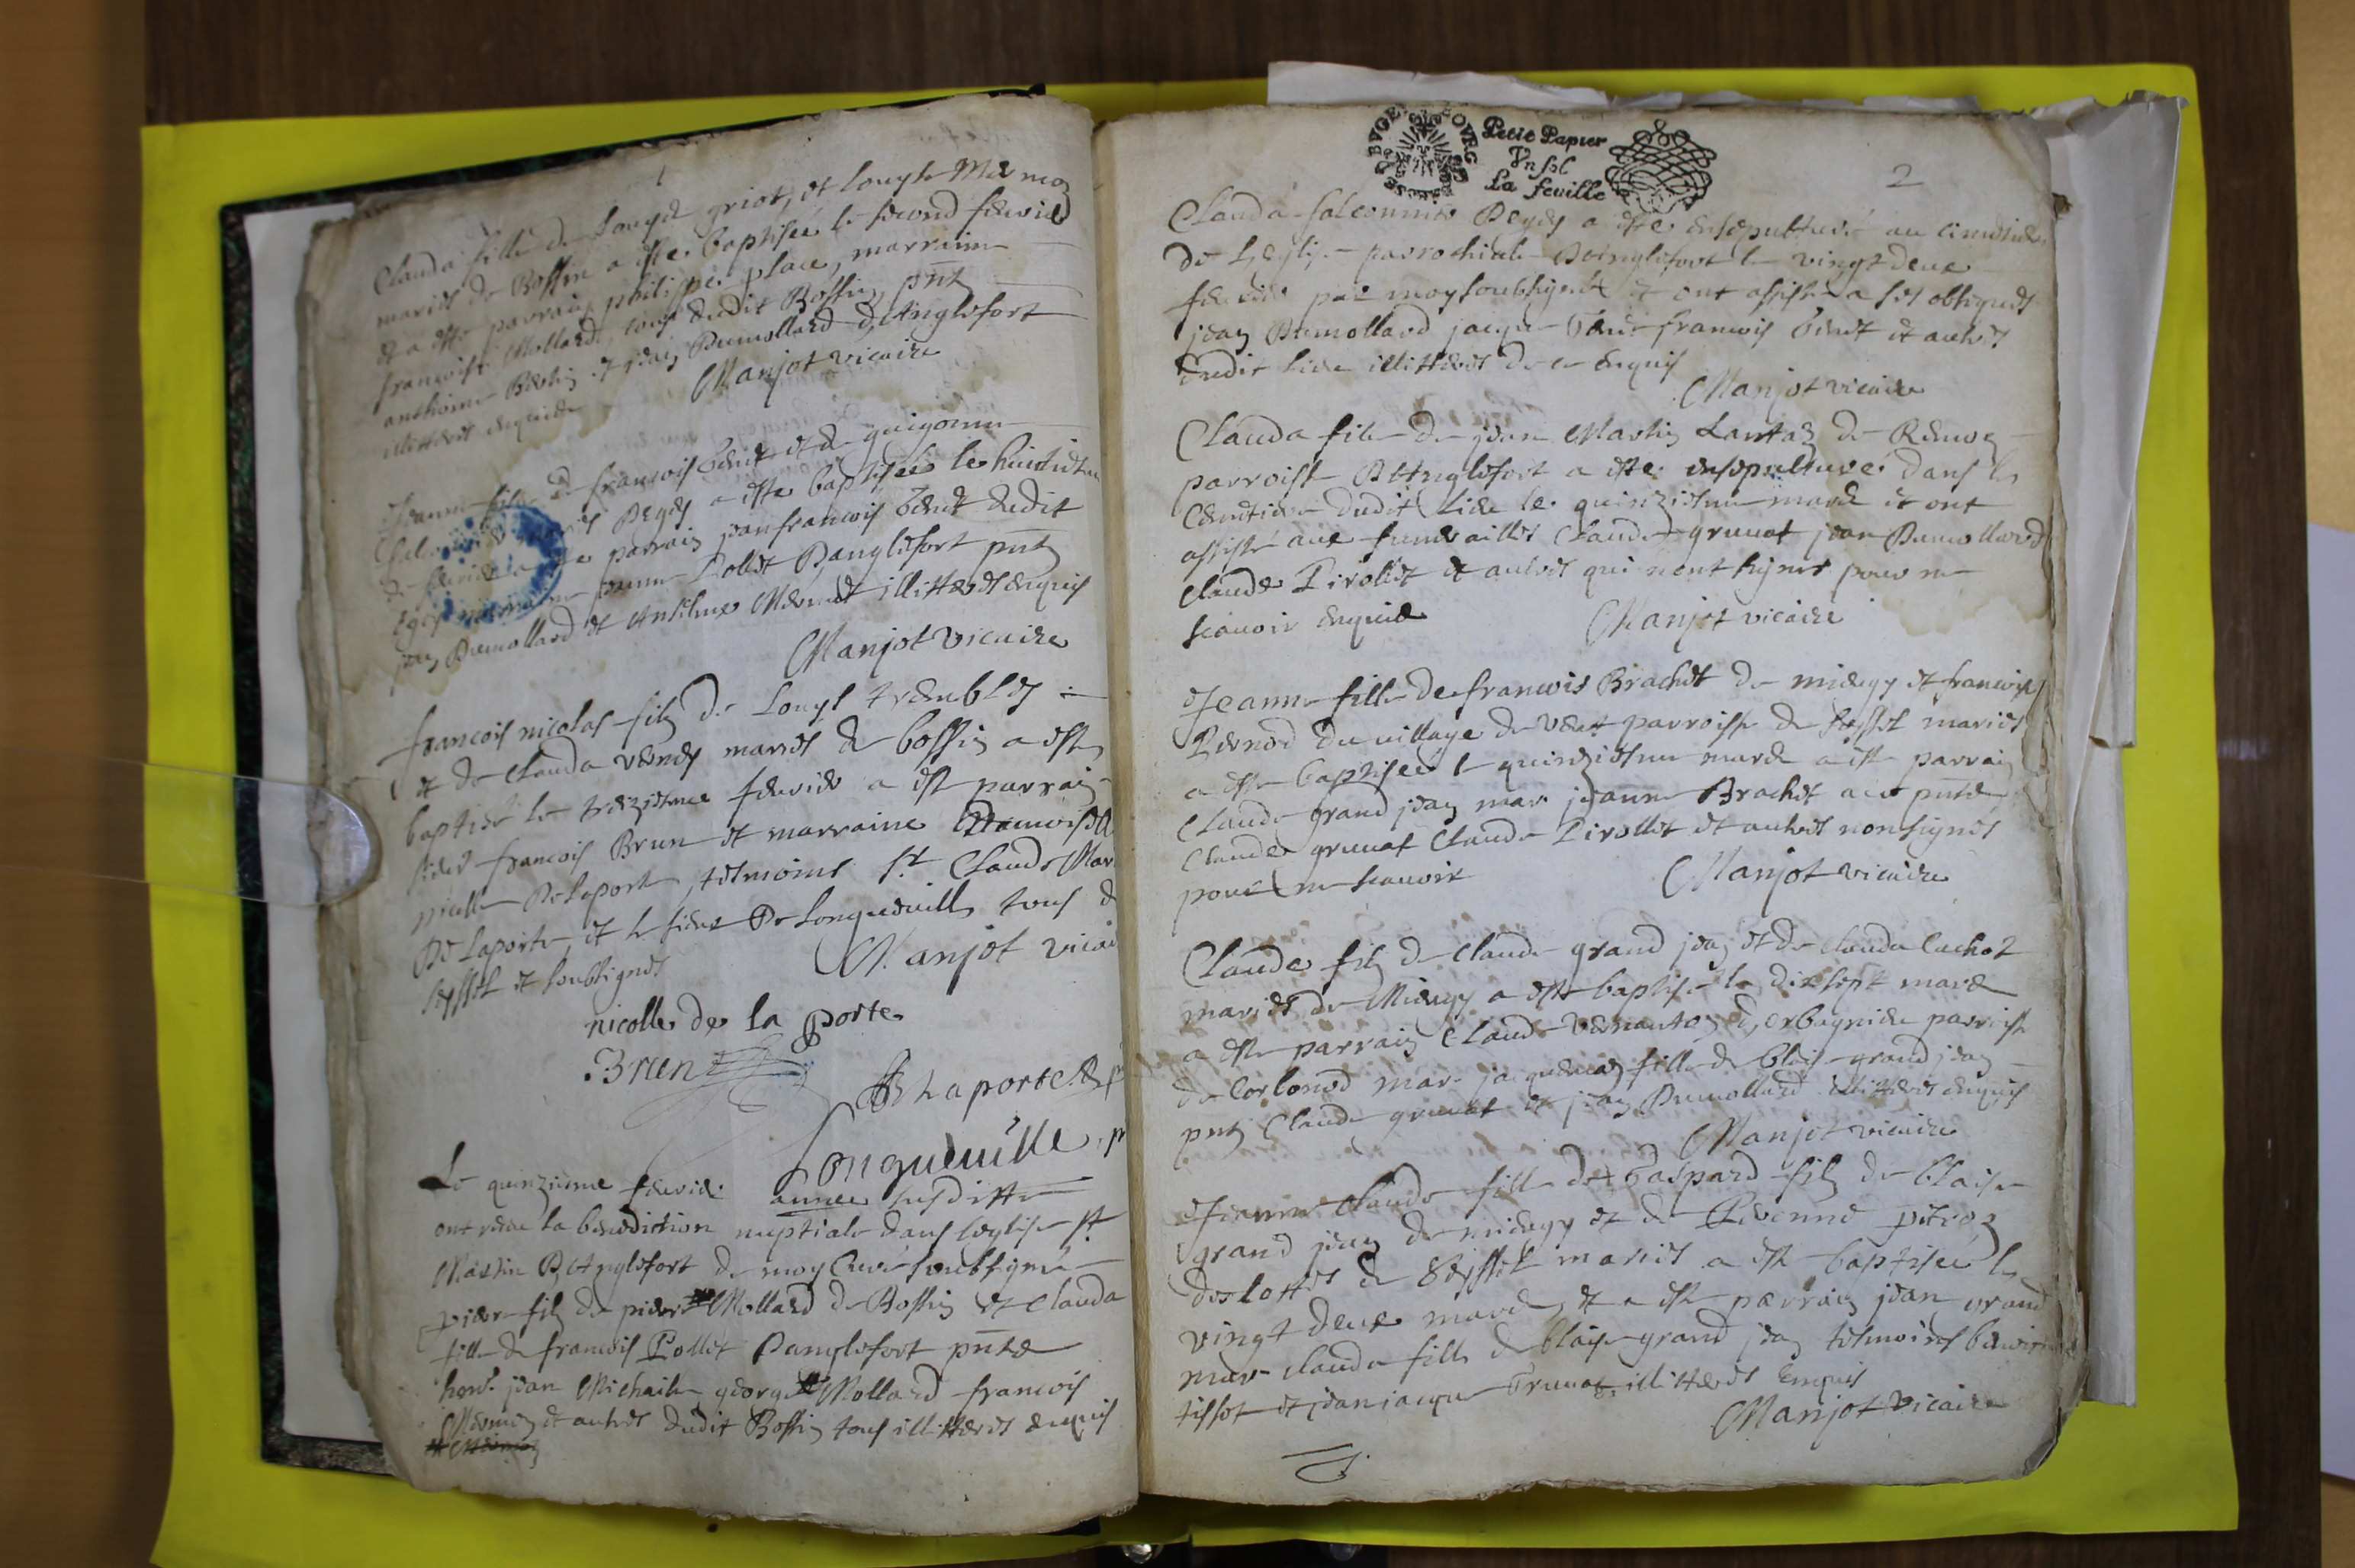 1
Clauda fille de Louys griot, et Louyse Mermoz
mariés de Bossin a este baptisée le second febvrier
et a este parrain philippe place, marraine
francoise Mollard, tous dudit Bossin, pnts
anthoine Berlin et jean Dumollard d'Anglefort
illitteres enquis
Manjot vicaire
Jeanne fille de francois et de guigonne
mariés Degés a este baptisée le huictiesme
de febvrier a este parrain jean francois dudit
marraine Pollet D'anglefort pnts
jean Dumollard et Anthelme Mermet illitteres enquis
Manjot vicaire
francois nicolas fils de Louys trembley
et de Clauda mariés de bossin a este
baptisé le treiziesme febvrier a este parrain
sieur francois Brun et marraine Damoiselle
nicolle De laporte, tesmoins Sr. Claude Mar
De Laporte, et le sieur De Longueville tous de
seyssel et soubsignes
Manjot vicai
nicolle de la porte
Brun
De Laporte. p
Longueville. p
Le quinziesme febvrier année susditte
ont receu la benediction nuptiale dans leglise St
Martin D'Anglefort de moy Curé soubsigné
pierre fils de pierre Mollard de Bossin et Clauda
fille de francois Pollet Danglefort pnts
hon. jean Michaile george Mollard francois
Mermoz et autres dudit Bossin tous illitteres enquis
Petit Papier
Un sol
La feuille
2
Clauda falconnier Degés a este ensepulturé au cimetiere
de Leglise parrochiale D'Anglefort le vingt deux
febvrier par moy soubsigné et ont assisté a ses obseques
jean Dumollard jacques francois et autres
dudit lieu illitteres de ce enquis
Manjot vicaire
Clauda file de jean Martin Lantaz de Remoz
parroisse D'Anglefort a este ensepulturé dans le
Cemetiere dudit Lieu le quinziesme mard et ont
assisté aux funerailles Claude gruuat jean Dumollard
claude Pirollet et autres qui n'ont signes pour ne
scauoir enquis
Manjot vicaire
Jeanne fille de francois Brachet de mieugy et francoise
Pernod du village de parroisse de seyssel mariés
a este baptisée le quinziesme mard a este parrain
Claude grand jean mar. jeanne Brachet a ce pnts
Claude gruuat Claude Pirollet et autres non signes
pour ne scauoir
Manjot vicaire
Claude fils de claude grand jean et de clauda Cachoz
mariés de Mieugy a este baptisé le dixsept mard
a este parrain Claude d'orbagnieu parroisse
de Corbonod mar. fille de blaise grand jean
pnts Claude gruuat et jean Dumollard illitteres enquis
Manjot vicaire
Jeanne Claude fille de Gaspard fils de blaise
grand jean de mieugy et de
de Seyssel mariés a este baptisée le
vingt deux mard, et a este parrain jean grand
mar. clauda fille de blaise grand jean tesmoins
tissot et jean jacque illitteres enquis
Manjot vicaire